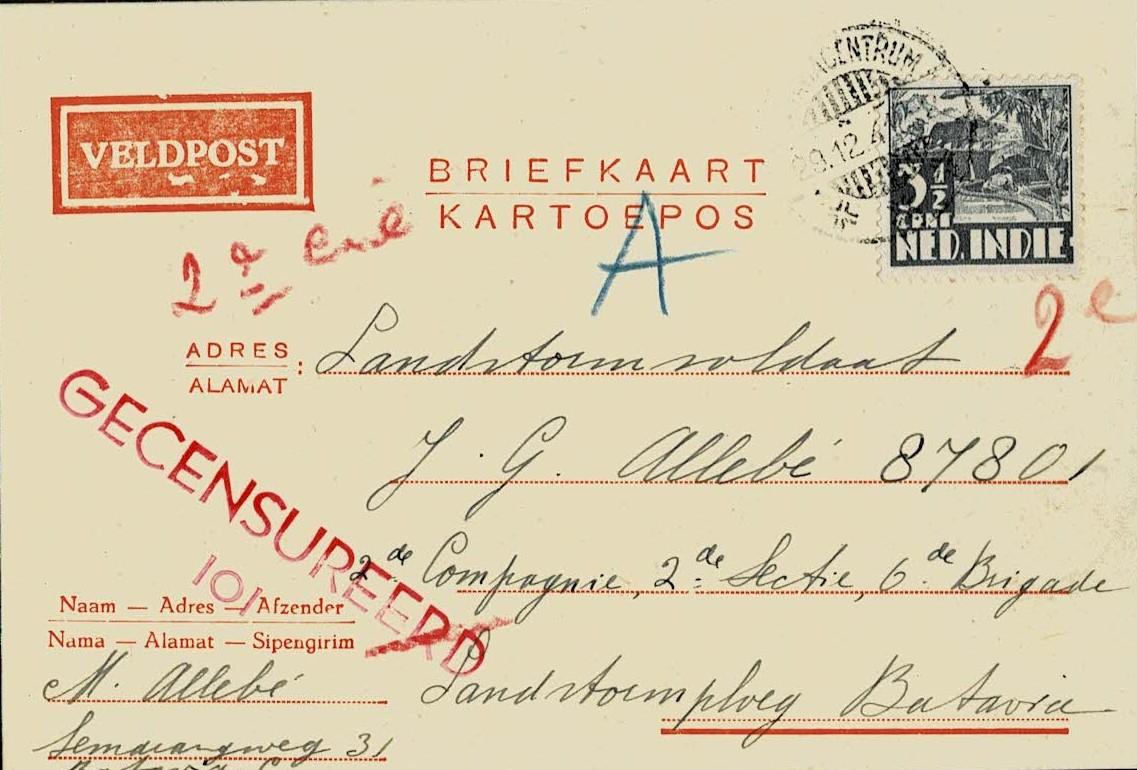 VELDPOST
BRIEFKAART
KARTOEPOS
CENTRUM
29.12.4
3½
CENT
NED. INDIE
A
2e
2e
ADRES
ALAMAT :
Landstormsoldaat
J. G. Allebé 87801
2de Compagnie, 2de Sectie, 6de Brigade
Landstormploeg Batavia
GECENSUREERD
101
Naam — Adres — Afzender
Nama — Alamat — Sipengirim
M. Allebé
Semarangweg 31